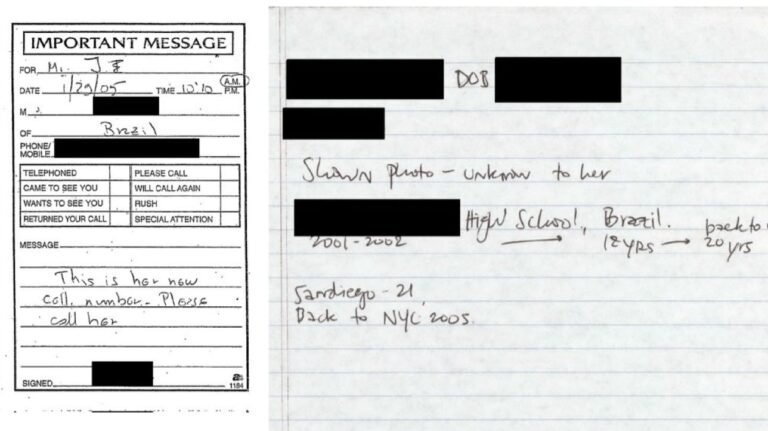 IMPORTANT MESSAGE
FOR Mr. J.E
DATE 1/29/05 TIME 10:10 A.M. P.M.
M
OF Brazil
PHONE/
MOBILE
TELEPHONED PLEASE CALL
CAME TO SEE YOU WILL CALL AGAIN
WANTS TO SEE YOU RUSH
RETURNED YOUR CALL SPECIAL ATTENTION
MESSAGE
This is her new
cell. number. Please
call her
SIGNED
1184
DOB
Shown photo - unknown to her
High School, Brazil. back to
2001-2002 → 18 yrs → 20 yrs
Sandiego - 21
Back to NYC 2005.